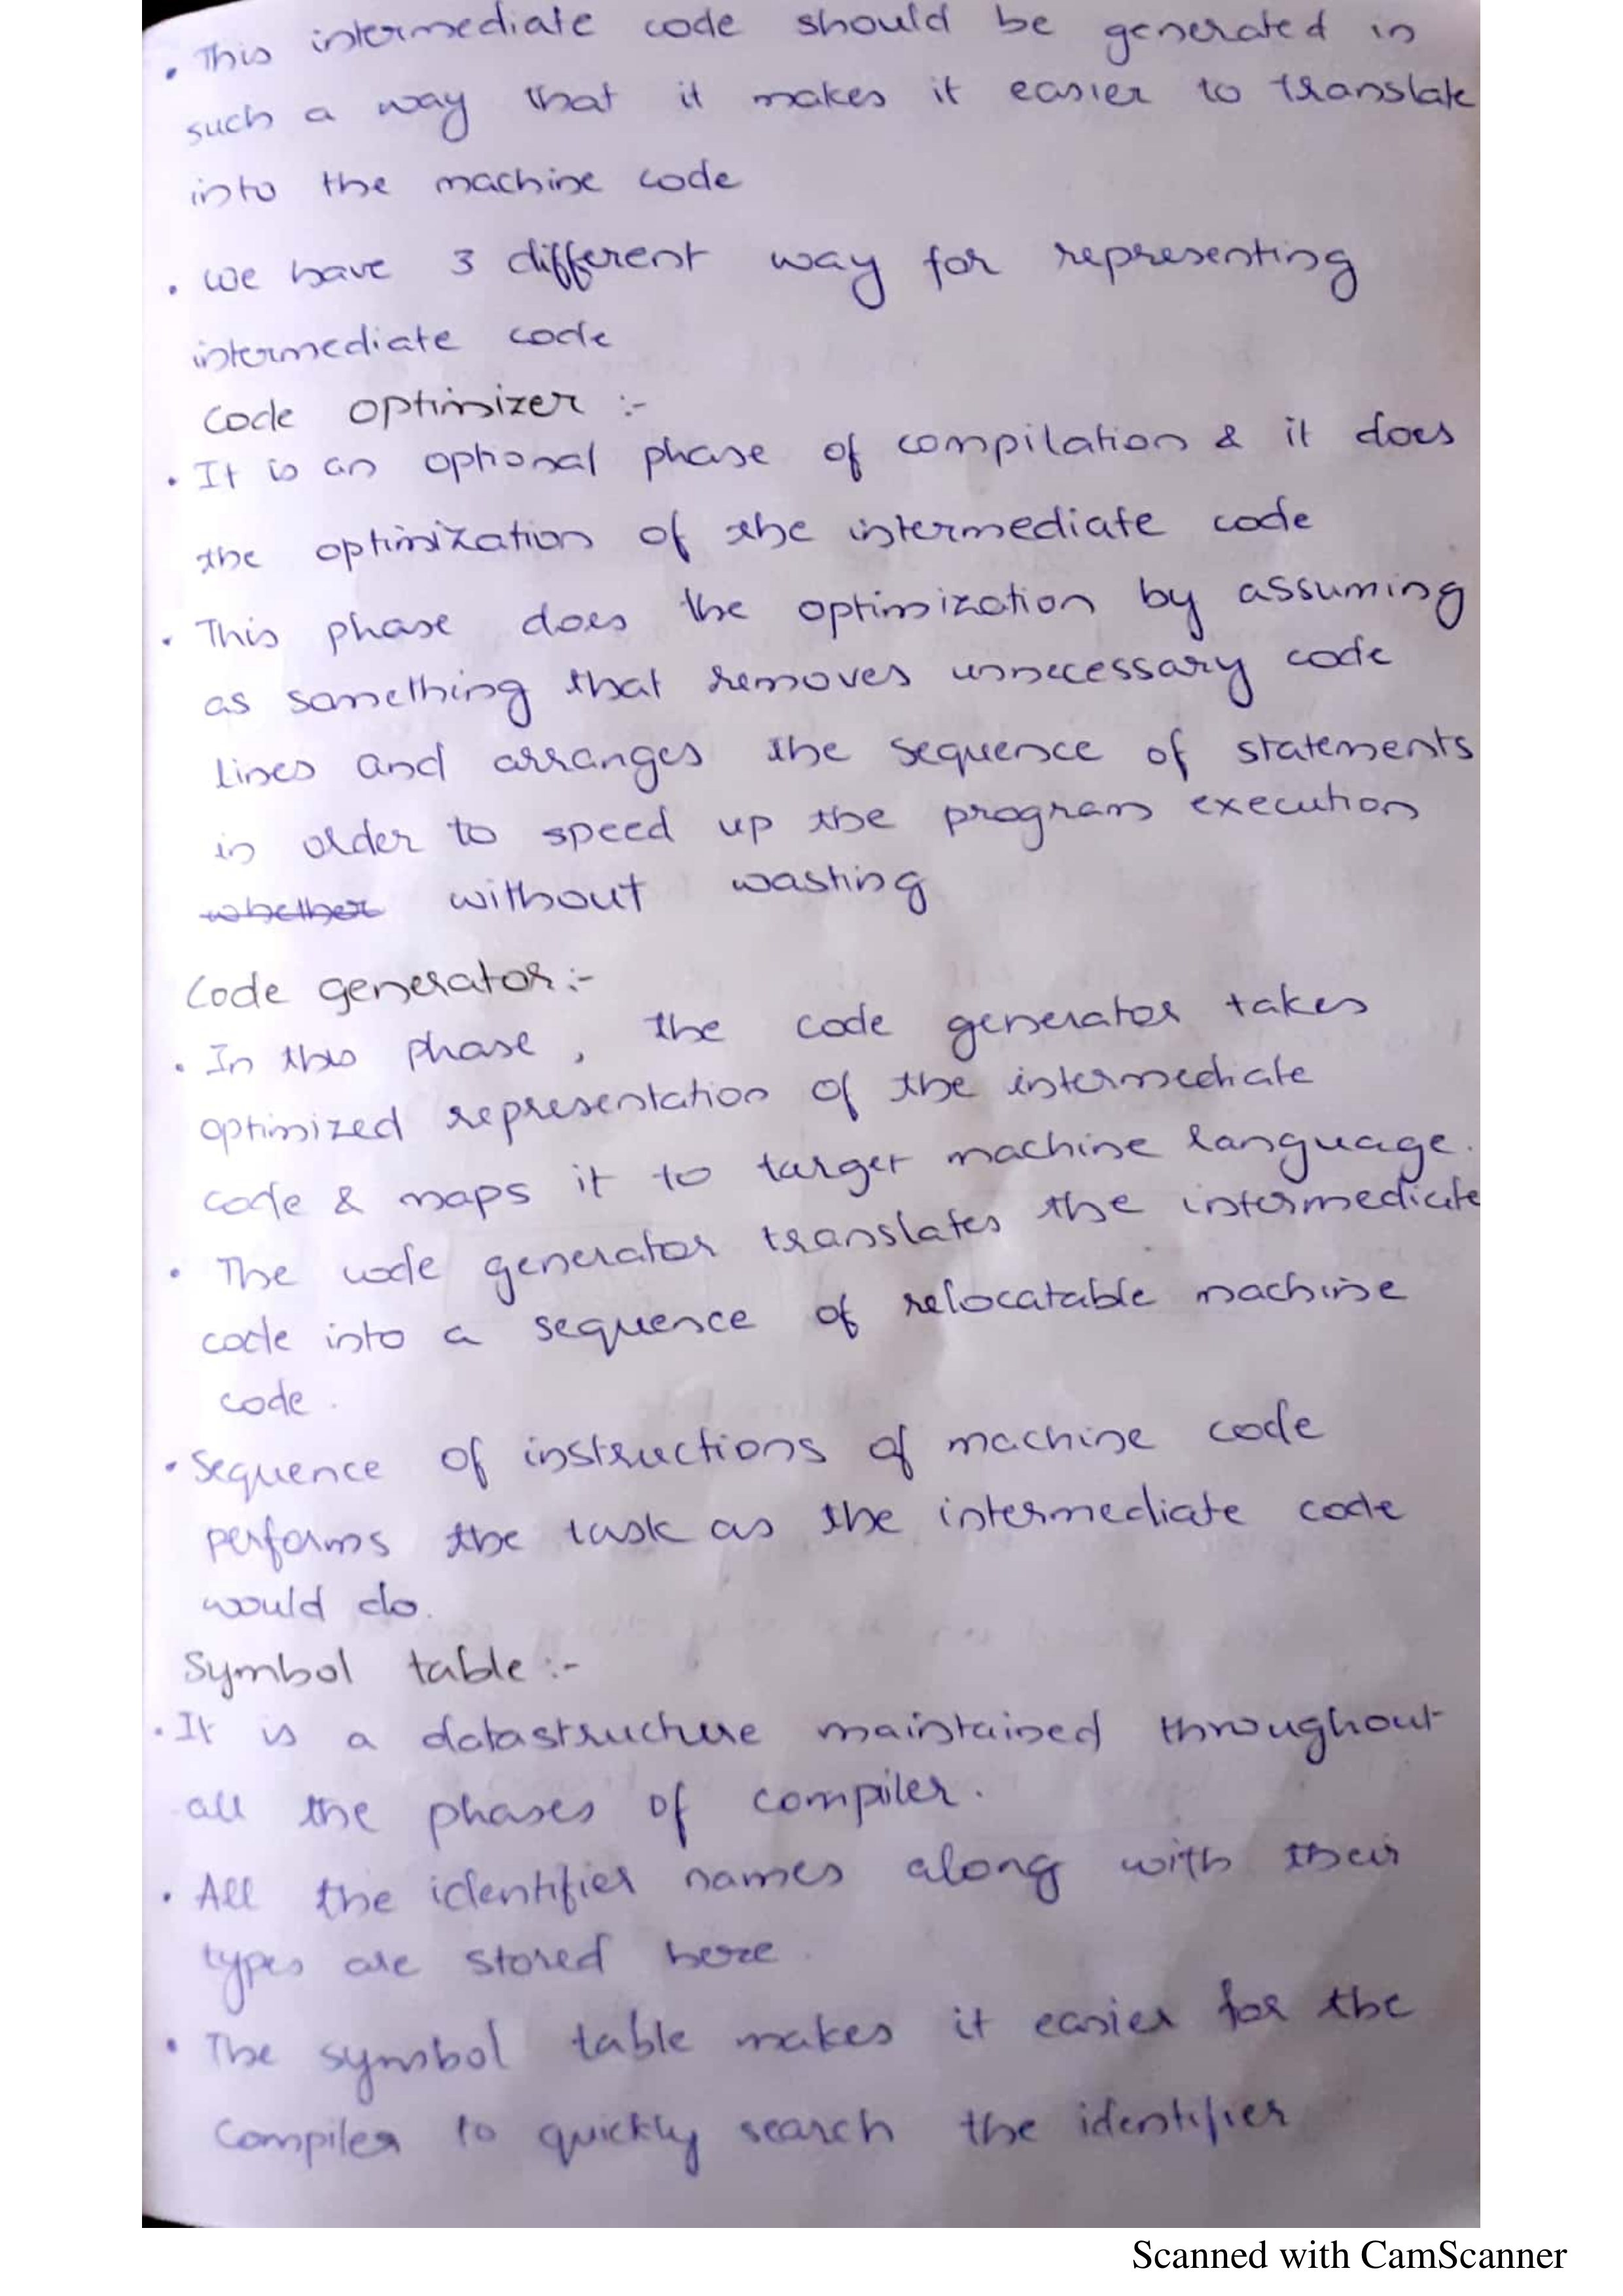 . This intermediate code should be generated in
such a way that it makes it easier to translate
into the machine code
. we have 3 different way for representing
intermediate code
Code optimizer :-
. It is an optional phase of compilation & it does
the optimization of the intermediate code
. This phase does the optimization by assuming
as something that removes unnecessary code
Lines and arranges the sequence of statements
in order to speed up the program execution
whether without wasting
Code generator:-
. In this phase, the code generator takes
optimized representation of the intermediate
code & maps it to target machine language.
. The code generator translates the intermediate
code into a sequence of relocatable machine
code.
. Sequence of instructions of machine code
performs the task as the intermediate code
would do.
Symbol table:-
. It is a datastructure maintained throughout
all the phases of compiler.
. All the identifier names along with their
types are stored here.
. The symbol table makes it easier for the
Compiler to quickly search the identifier
Scanned with CamScanner